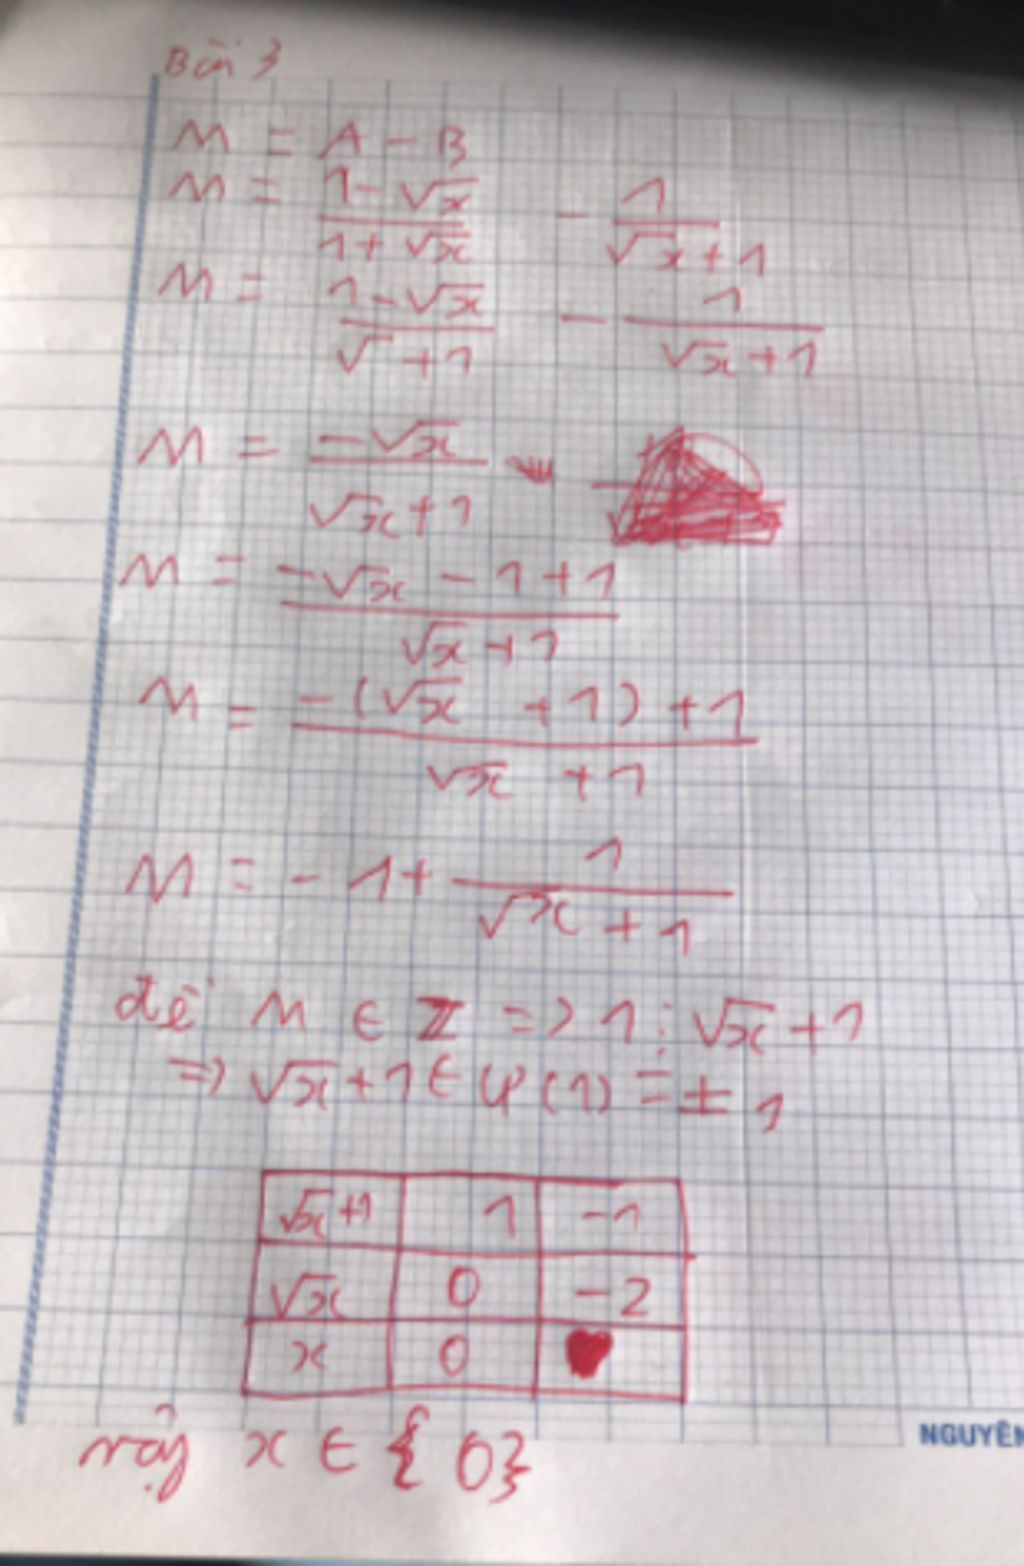 Bài 3
M = A - B
M = \frac{1-\sqrt{x}}{1+\sqrt{x}} - \frac{1}{\sqrt{x}+1}
M = \frac{1-\sqrt{x}}{\sqrt{}+1} - \frac{1}{\sqrt{x}+1}
M = \frac{-\sqrt{x}}{\sqrt{x}+1}
M = \frac{-\sqrt{x}-1+1}{\sqrt{x}+1}
M = \frac{-(\sqrt{x}+1)+1}{\sqrt{x}+1}
M = -1+\frac{1}{\sqrt{x}+1}
để M ∈ Z => 1 ⋮ \sqrt{x}+1
=> \sqrt{x}+1 ∈ Ư(1) = ± 1
\sqrt{x}+1 1 -1
\sqrt{x} 0 -2
x 0
vậy x ∈ {0}
NGUYÊN